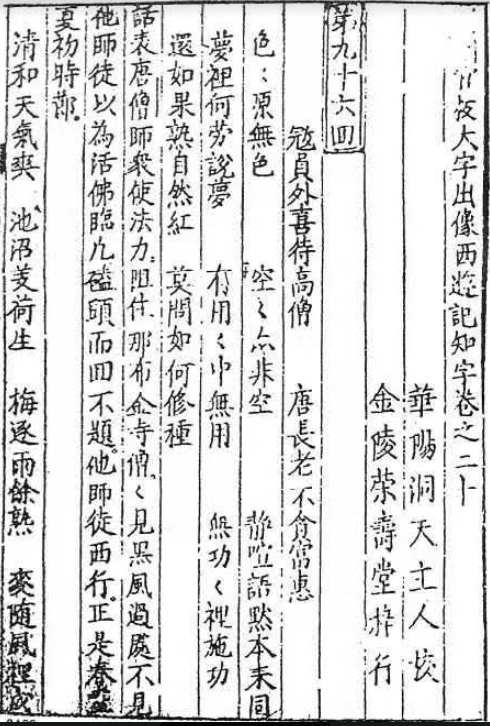 官板大字出像西遊記知字卷之二十
華陽洞天主人校
金陵榮壽堂梓行
第九十六回
冦員外喜待高僧 唐長老不貪富惠
色〻原無色 空〻亦非空 靜喧語默本来同
夢裡何劳說夢 有用〻中無用 無功〻裡施功
還如果熟自然紅 莫問如何修種
話表唐僧師衆使法力阻住那布金寺僧〻見黑風過處不見
他師徒以為活佛臨凡磕頭而回不題。他師徒西行。正是春盡
夏初時節。
清和天氣爽 池沼芰荷生 梅逐雨餘熟 麥隨風裡成